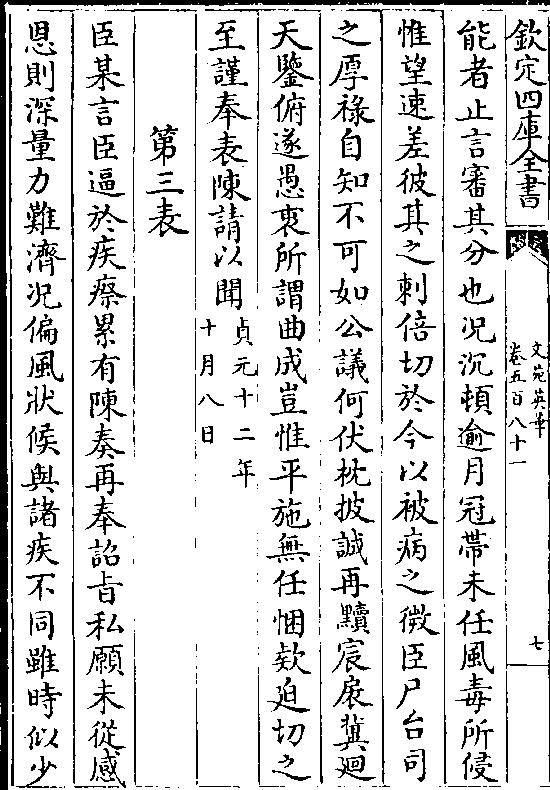 欽定四庫全書
文苑英華
卷五百八十一
七
能者止言審其分也况沉頓逾月冠帶未任風毒所侵
惟望速差彼其之刺倍切於今以被病之微臣尸台司
之厚祿自知不可如公議何伏枕披誠再黷宸扆冀廻
天鑒俯遂愚衷所謂曲成豈惟平施無任悃欵迫切之
至謹奉表陳請以聞貞元十二年
十月八日
第三表
臣某言臣逼於疾瘵累有陳奏再奉詔旨私願未從感
恩則深量力難濟况偏風狀候與諸疾不同雖時似少